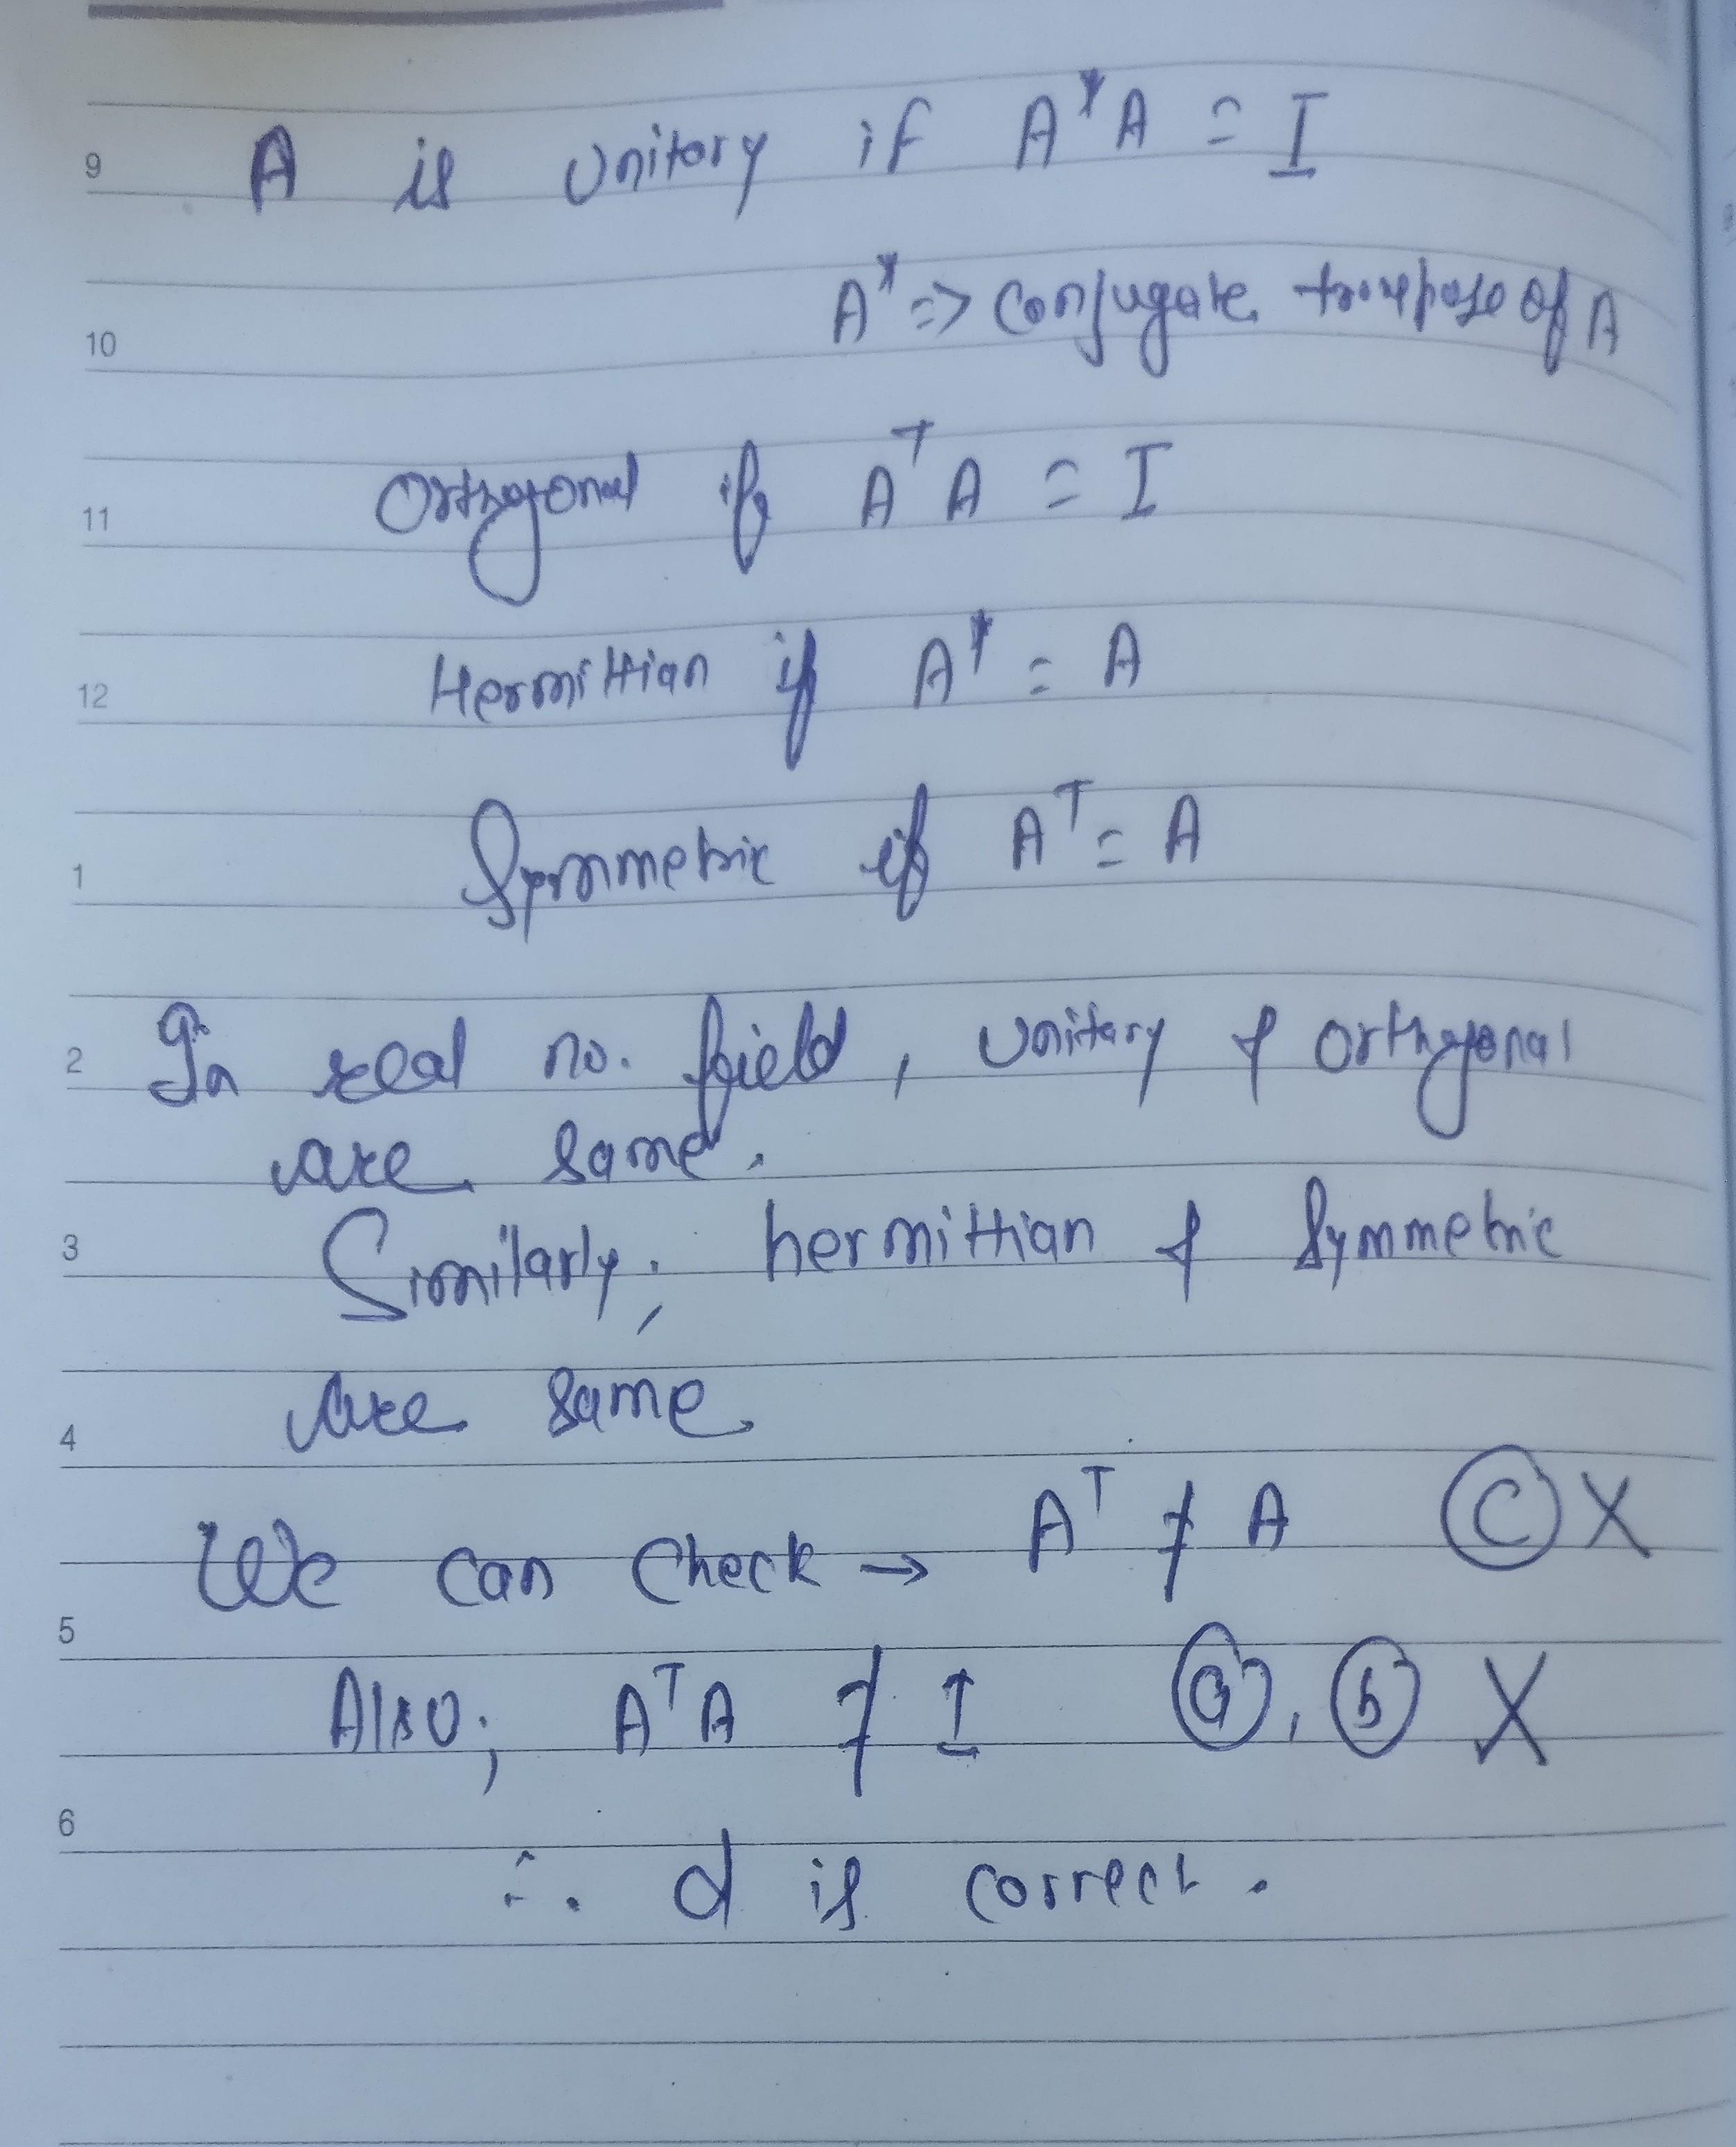 9 A is Unitary if A*A = I
10 A* => Conjugate transpose of A
11 Orthogonal if AᵀA = I
12 Hermittian if A* = A
1 Symmetric if Aᵀ = A
2 In real no. field, Unitary & Orthogonal
are same.
3 Similarly, hermittian & Symmetric
4 are same
We can Check → Aᵀ ≠ A Ⓒ X
5
Also, AᵀA ≠ I ⓐ, ⓑ X
6
∴ d is correct.